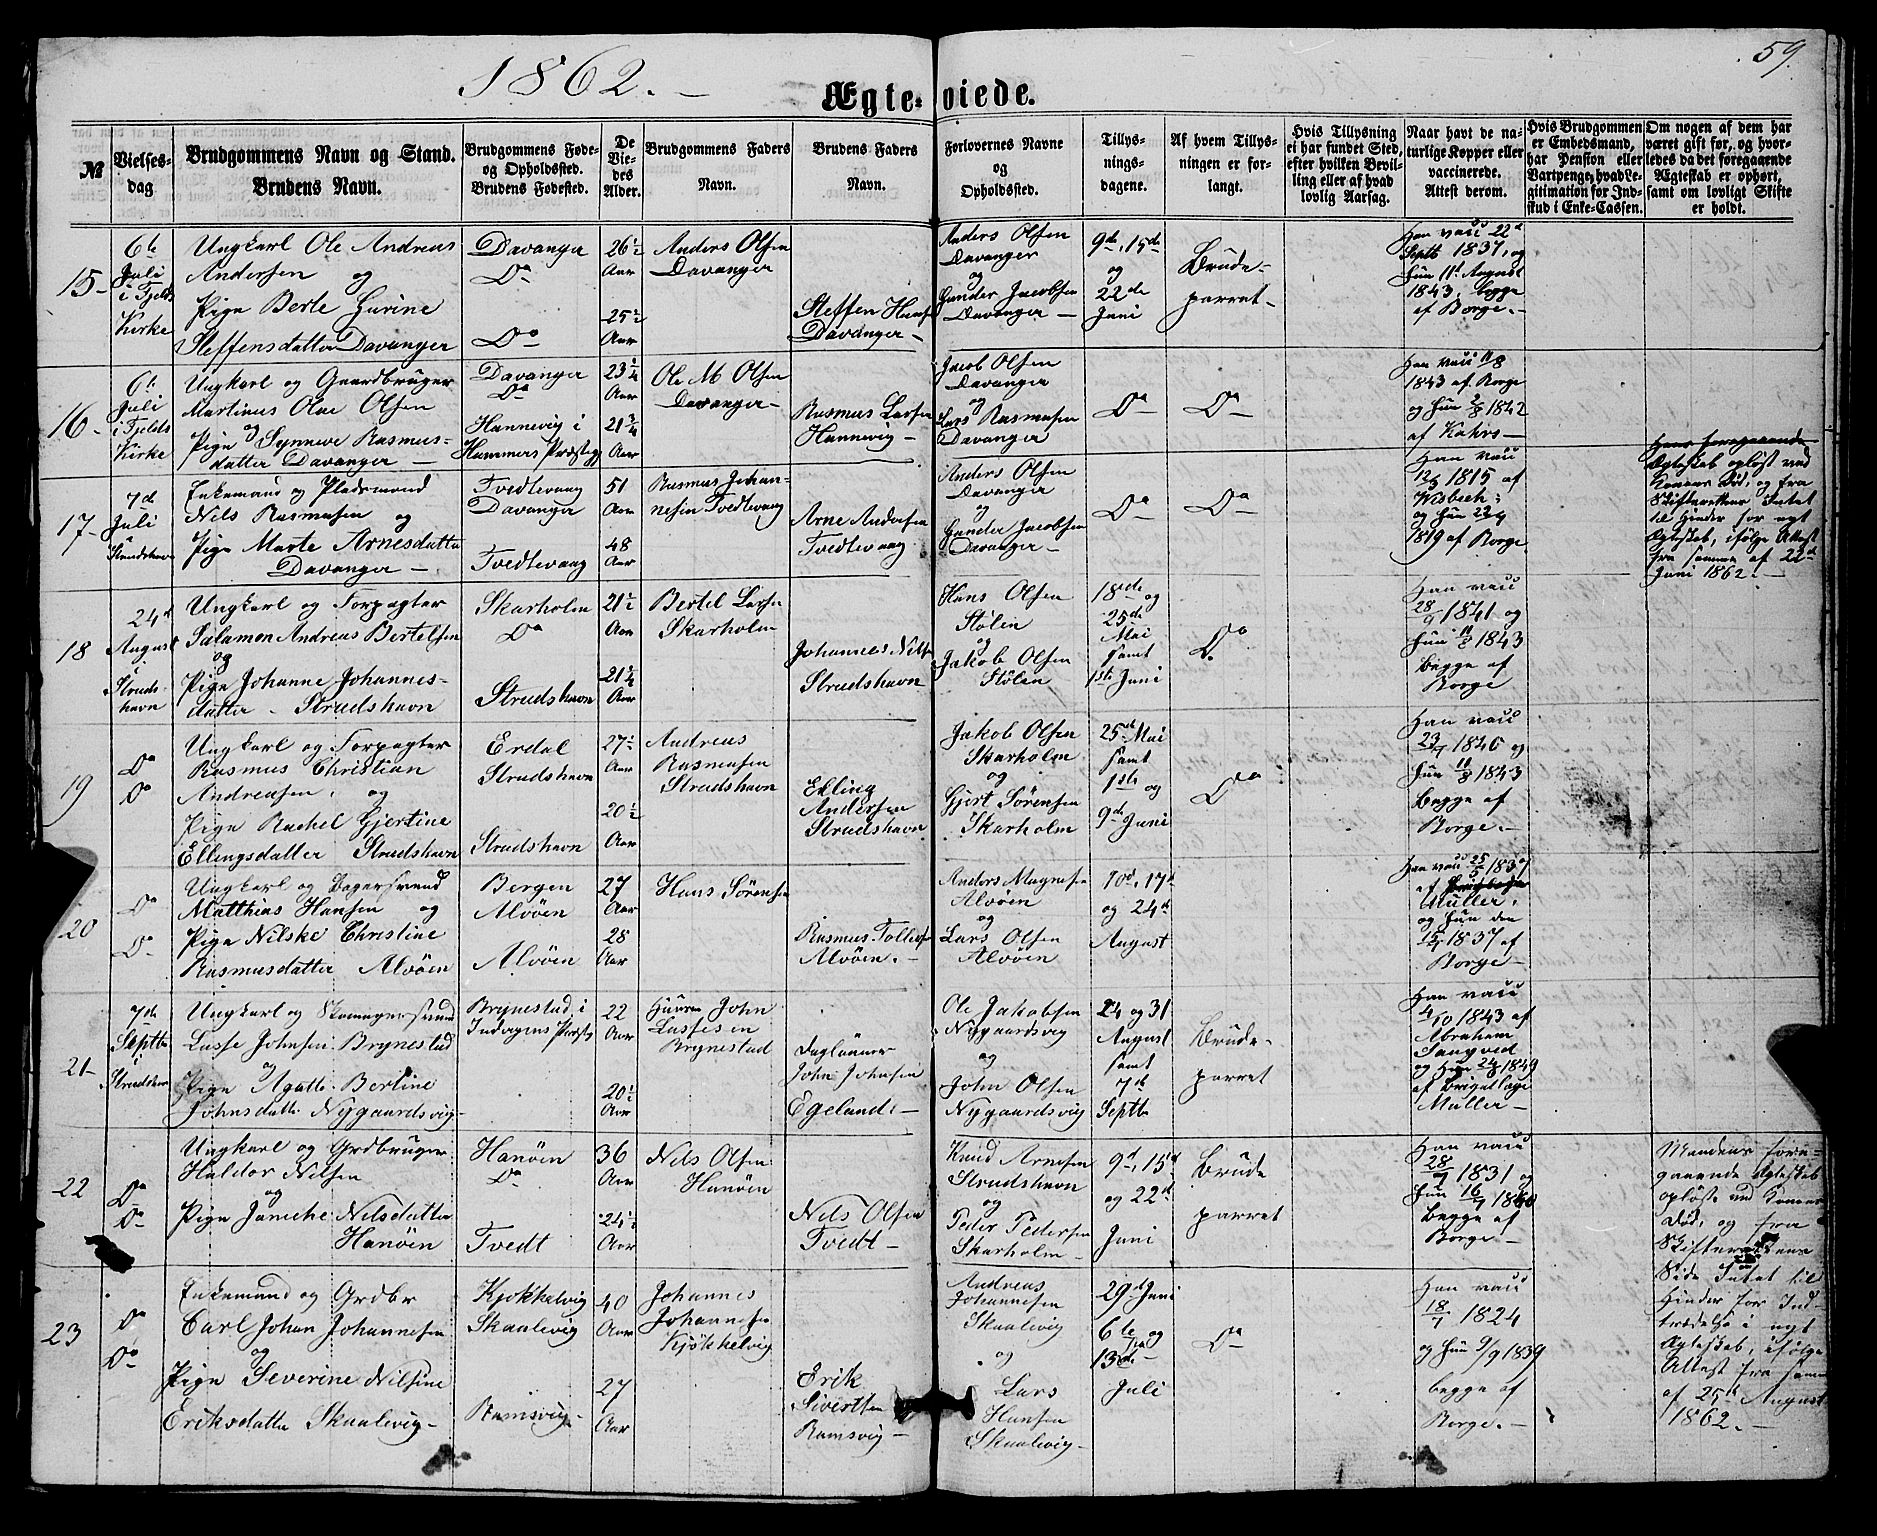 1862. -
59.
Ægte-viede.
№
Vielses-
dag
Brudgommens Navn og Stand.
Brudens Navn.
Brudgommens Føde-
og Opholdssted.
Brudens Fødested.
De
Vie-
des
Alder.
Brudgommens Faders
Navn.
Brudens Faders
Navn.
Forlovernes Navne
og
Opholdssted.
Tillys-
nings-
dagene.
Af hvem Tillys-
ningen er for-
langt.
Hvis Tillysning
ei har fundet Sted,
efter hvilken Bevil-
ling eller af hvad
lovlig Aarsag.
Naar havt de na-
turlige Kopper eller
vaccinerede.
Attest derom.
Hvis Brudgommen
er Embedsmand,
har Pension eller
Vartpenge, hvad Le-
gitimation for Ind-
skud i Enke-Cassen.
Om nogen af dem har
været gift før, og hvor-
ledes da det foregaaende
Ægteskab er ophørt,
samt om lovligt Skifte
er holdt.
15-
6te
Juli
i Fjelds
Kirke
Ungkarl Ole Andreas
Andersen og
Pige Berte Gurine
Steffensdatter Davanger
Davanger
Do
Do
26½
Aar
25½
Aar
Anders Olsen
Davanger
Steffen Hans
Davanger -
Anders Olsen
Davanger
og
Gunder Jacobsen
Davanger -
9de, 15de
og
22de
Juni
Brude-
parret-
Han vacc 22d
Septb 1837, og
Hun 11t August
1843, begge
af Borge. -
16-
6te
Juli
i Fjelds
Kirke
Ungkarl og Gaardbruger
Martinus Olai Olsen
og
Pige Synneve Rasmus-
datter Davanger -
Davanger
Do
Hannevig i
Hammers Præsteg
23¼
Aar
21¾
Aar
Ole M Olsen
Davanger-
Rasmus Larsen
Hannevig -
Jacob Olsen
Davanger
og
Lars Rasmusen
Davanger
Do
Do
Han vacc 11/8
1843 af Borge
og Hun 2/8 1842
af Kahrs -
17-
7de
Juli
i
Strudshavn
Enkemand og Pladsmand
Nils Rasmusen og
Pige Marte Arnesdatter
Davanger -
Tvedtevaag
Davanger
Tvedtevaag
51
Aar
48
Aar
Rasmus Johan-
nesen Tvedtevaag
Arne Andersen
Tvedtevaag
Anders Olsen
Davanger
og
Gunder Jacobsen
Davanger -
Do
Do
Han vacc
12/5 1815 af
Wisbech;
og Hun 23/4
1819 af Borge
Hans foregaaende
Ægteskab opløst ved
Konens Død, og fra
Skifterettens Intet
til Hinder for nyt
Ægteskab, ifølge Attest
fra samme af 22d
Juni 1862. -
18
24d
August
i
Struds-
havn
Ungkarl og Forpagter
Salamon Andreas Bertelsen
og
Pige Johanne Johannes-
datter - Strudshavn
Skarholm
Do
Strudshavn
21½
Aar
21¾
Aar
Bertel Larsen
Skarholm
Johannes Nilsen
Strudshavn
Hans Olsen
Stølen
og
Jakob Olsen
Stølen
18de og
25de
Mai
samt
1ste Juni
Do
Han vacc
28/9 1841 og
Hun 11/8 1843
Begge af
Borge
19
Do
Do
Ungkarl og Forpagter
Rasmus Christian
Andreasen, og
Pige Rachel Gjertine
Ellingsdatter Strudshavn
Erdal
Strudshavn
Strudshavn
27½
Aar
20½
Aar
Andreas
Rasmusen
Strudshavn
Elling
Andersen
Strudshavn
Jakob Olsen
Skarholm
og
Gjert Sørensen
Skarholm
25de Mai
samt
1ste og
9de Juni
Do
Han vacc
23/7 1840 og
Hun 11/8 1843
Begge af
Borge. -
20
Do
Do
Ungkarl og Bagersvend
Matthias Hansen og
Pige Nilske Christine
Rasmusdatter Alvøen
Bergen
Alvøen
Alvøen
27
Aar
28
Aar
Hans Sørensen
Rasmus Tollefsen
Alvøen. -
Anders Magnesen
Alvøen
og
Lars Olsen
Alvøen
10d, 17d
og 24d
August
Han vacc 25/5 1837
af
Müller,
og Hun den
15/7 1837 af
Borge -
21-
7de
Septbr
i
Strudshavn
Ungkarl og Skomagersvend
Lasse Johnsen Brynestad
og
Pige Agatte Bertine
Johnsdatter Nygaardsvig-
Brynestad i
Indvigens Præsteg
22
Aar
20½
Aar
John
Lassesen
Brynestad
Daglønner
John Johnsen
Egeland. -
Ole Jakobsen
Nygaardsvig
og
John Olsen
Nygaardsvig
24 og 31
August
samt
7de
Septbr
Brude-
parret
Han vacc
4/10 1843 af
Abraham
Sangved
og Hun 24/8 1849
af Brigadlæge
Müller -
22
Do
Do
Ungkarl og Grdbruger
Haldor Nilsen
og
Pige Janicke Nilsdatter
Hanøen
Hanøen
Do
Tvedt
36
Aar
24½
Aar
Nils Olsen
Hanøen
Nils Olsen
Tvedt -
Knud Arnesen
Strudshavn
og
Peder Pedersen
Skarholm -
9d, 15d
og 22d
Juni
Brude
parret
Han vacc
28/7 1831 og
Hun 16/7 1860
Begge af
Borge -
Mandens fore-
gaaende Ægteskab
opløst ved Konens
Død, og fra
Skifterettens
Side Intet til
Hinder for Ind-
trædelse i nyt
Ægteskab, ifølge
Attest fra samme
af 25de August
1862. -
23
Do
Do
Enkemand og Grdbr
Carl Johan Johannesen
og
Pige Severine Nilsine
Eriksdatter Skaalevig-
Kjøkkelvig
Skaalevig
Ramsvig-
40
Aar
27
Aar
Johannes
Johannesen
Kjøkkelvig
Erik
Sivertsen
Ramsvig -
Andreas
Johannesen
Skaalevig
og
Lars
Hansen
Skaalevig-
29de Juni
6te og
13de
Juli
Do
Han vacc
18/7 1824
og Hun 9/9 1839
begge af
Borge. -